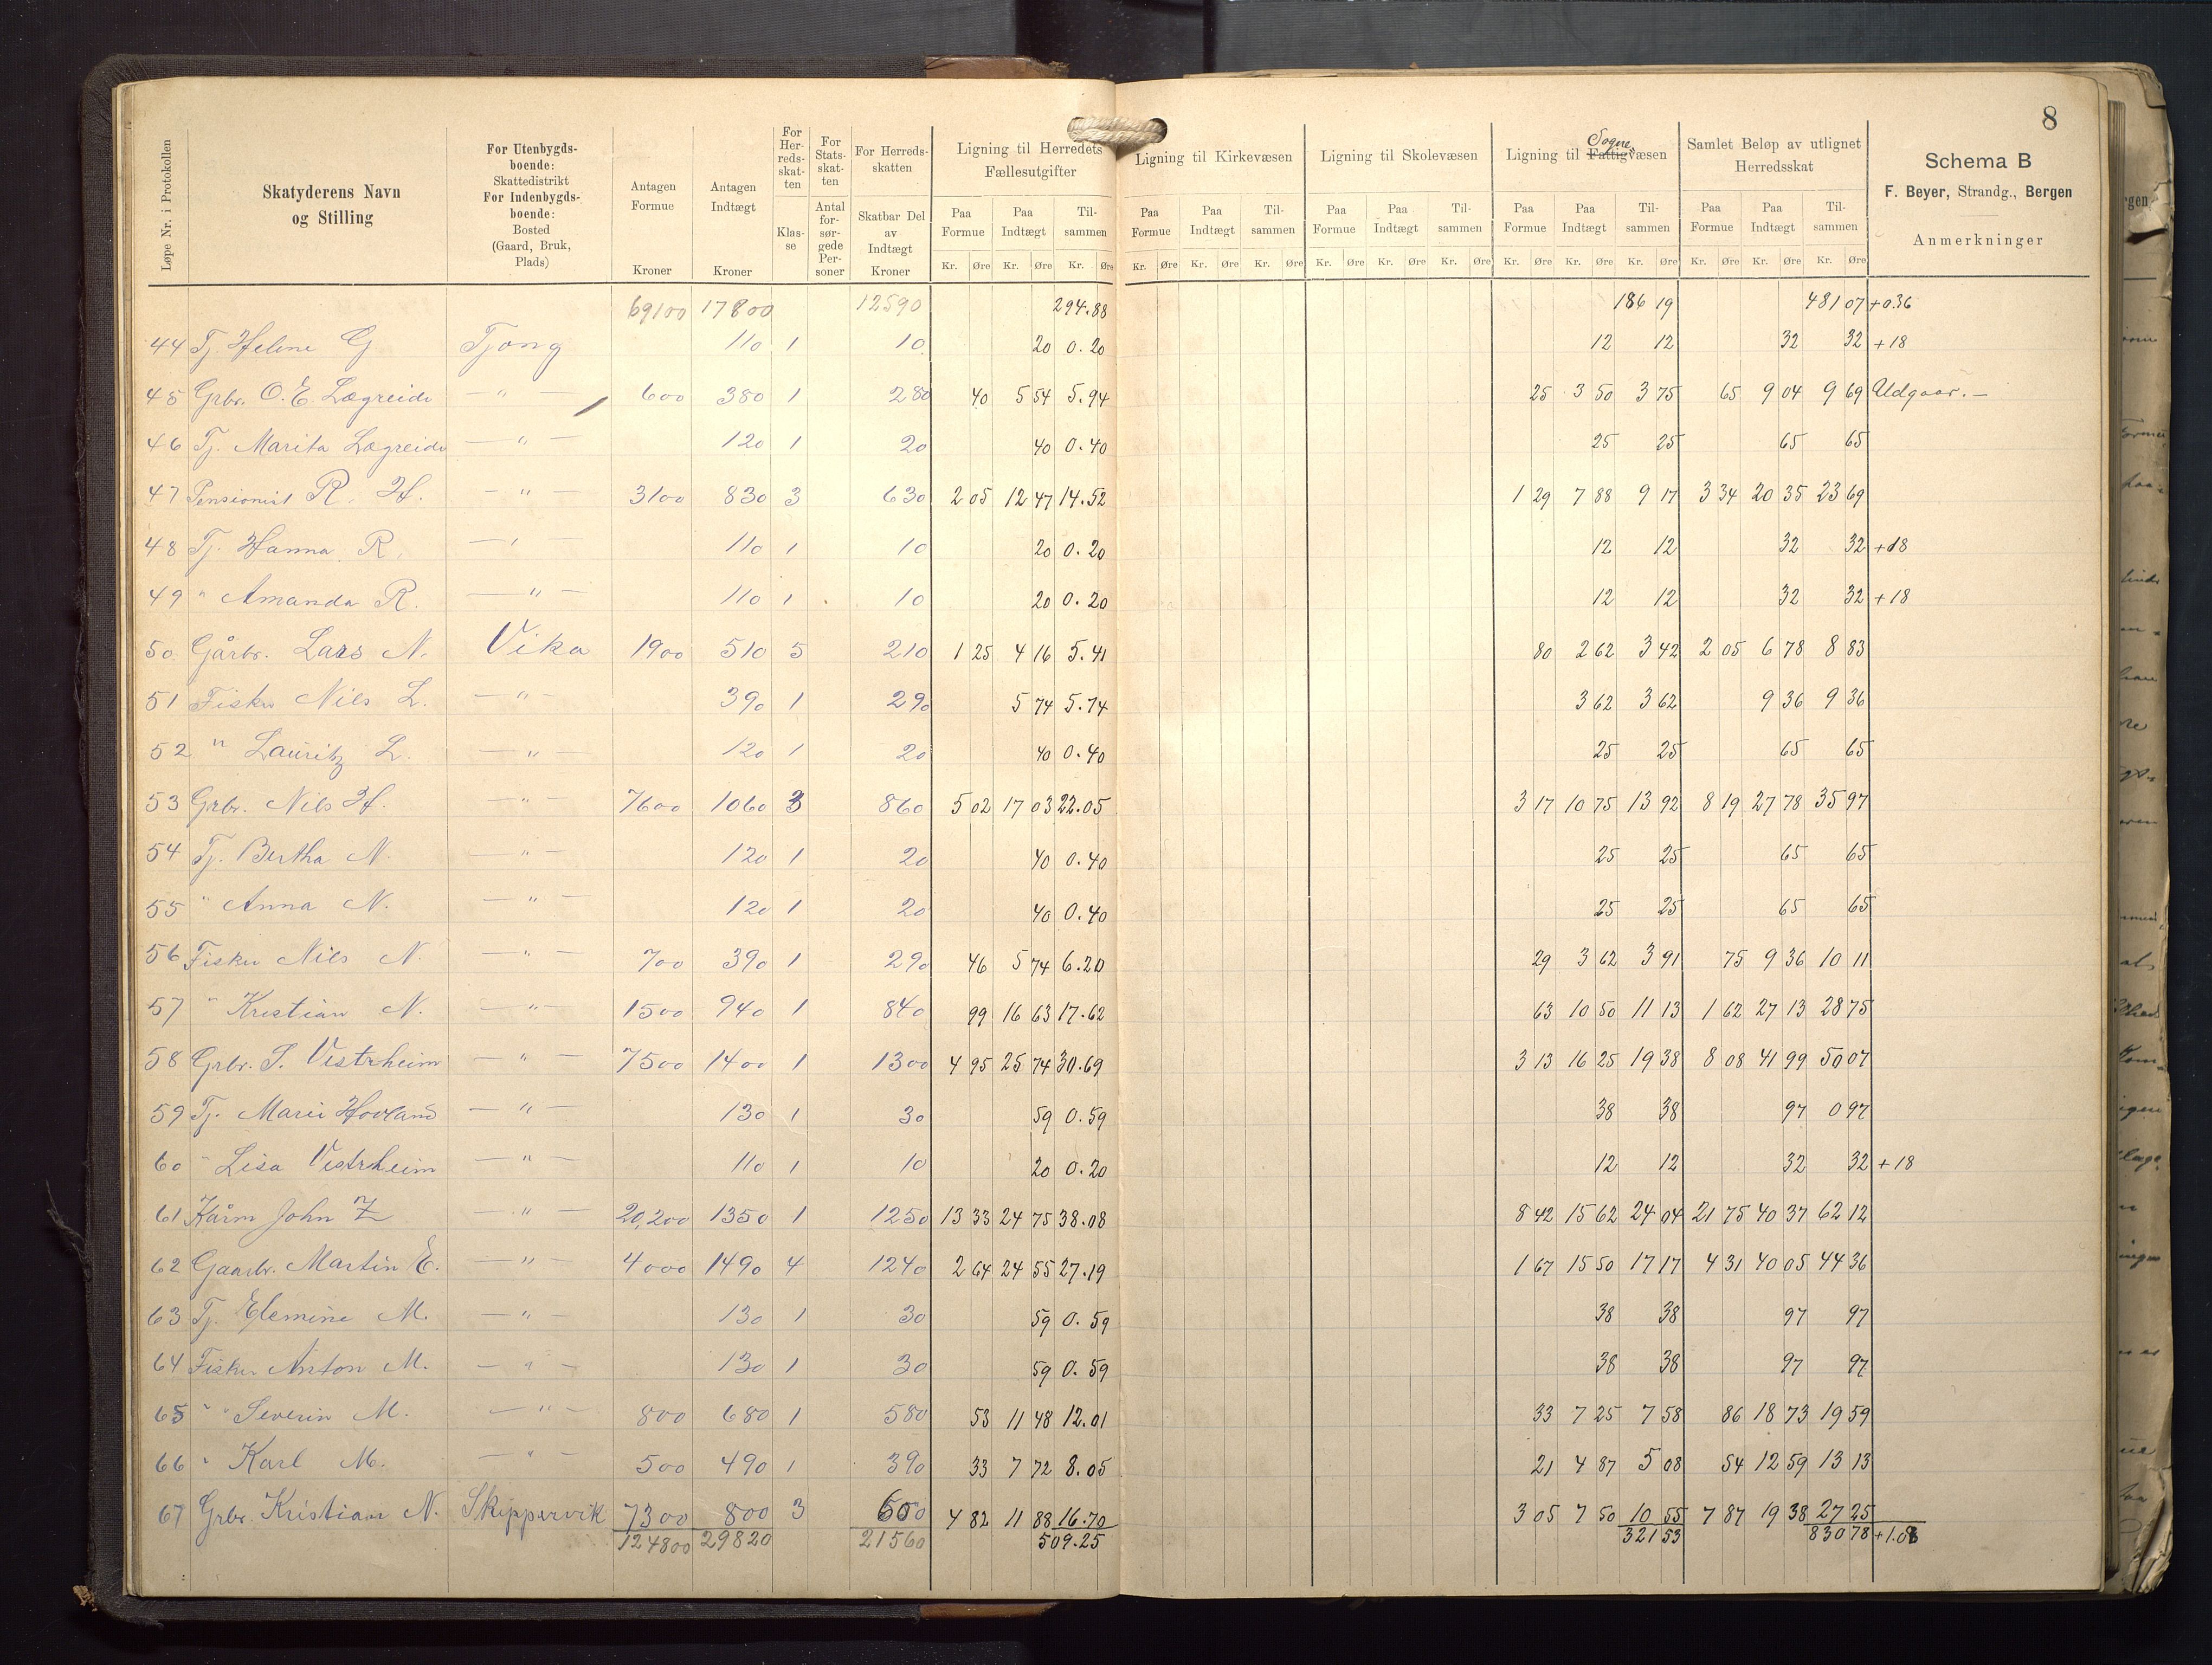 8
Løpe Nr. i Protokollen
Skatyderens Navn og Stilling
For Utenbygds-boende: Skattedistrikt For Indenbygds-boende: Bosted (Gaard, Bruk, Plads)
Antagen Formue Kroner
Antagen Indtægt Kroner
For Her-reds-skat-ten Klas-se
For Stats-skat-ten Antal for-sør-gede Per-soner
For Herreds-skatten Skatbar Del av Indtægt Kroner
Ligning til Herredets Fællesutgifter
Ligning til Kirkevæsen
Ligning til Skolevæsen
Ligning til Fattigvæsen Sogne
Samlet Beløp av utlignet Herredsskat
Schema B
F. Beyer, Strandg., Bergen
Anmerkninger
Paa Formue Paa Indtægt Til-sammen Paa Formue Paa Indtægt Til-sammen Paa Formue Paa Indtægt Til-sammen Paa Formue Paa Indtægt Til-sammen Paa Formue Paa Indtægt Til-sammen
Kr. Øre Kr. Øre Kr. Øre Kr. Øre Kr. Øre Kr. Øre Kr. Øre Kr. Øre Kr. Øre Kr. Øre Kr. Øre Kr. Øre Kr. Øre Kr. Øre Kr. Øre
69100 17800 12590 294.88 186 19 481 07 +0.36
44 Tj. Helene G Tjong 110 1 10 20 0.20 12 12 32 32 +18
45 Grbr. O. E. Lægreid — " — 600 380 1 280 40 5 54 5.94 25 3 50 3 75 65 9 04 9 69 Udgaar. —
46 Tj. Marita Lægreid — " — 120 1 20 40 0.40 25 25 65 65
47 Pensionist R. H. — " — 3100 830 3 630 2 05 12 47 14.52 1 29 7 88 9 17 3 34 20 35 23 69
48 Tj. Hanna R. — " — 110 1 10 20 0.20 12 12 32 32 +18
49 " Amanda R. — " — 110 1 10 20 0.20 12 12 32 32 +18
50 Gårbr. Lars N. Vika 1900 510 5 210 1 25 4 16 5.41 80 2 62 3 42 2 05 6 78 8 83
51 Fisker Nils L. — " — 390 1 290 5 74 5.74 3 62 3 62 9 36 9 36
52 " Lauritz L. — " — 120 1 20 40 0.40 25 25 65 65
53 Grbr. Nils H. — " — 7600 1060 3 860 5 02 17 03 22.05 3 17 10 75 13 92 8 19 27 78 35 97
54 Tj. Bertha N. — " — 120 1 20 40 0.40 25 25 65 65
55 " Anna N. — " — 120 1 20 40 0.40 25 25 65 65
56 Fisker Nils N. — " — 700 390 1 290 46 5 74 6.20 29 3 62 3 91 75 9 36 10 11
57 " Kristian N. — " — 1500 940 1 840 99 16 63 17.62 63 10 50 11 13 1 62 27 13 28 75
58 Grbr. S. Vestrheim — " — 7500 1400 1 1300 4 95 25 74 30.69 3 13 16 25 19 38 8 08 41 99 50 07
59 Tj. Marie Hovland — " — 130 1 30 59 0.59 38 38 97 0 97
60 " Lisa Vestrheim — " — 110 1 10 20 0.20 12 12 32 32 +18
61 Kårm John Z — " — 20,200 1350 1 1250 13 33 24 75 38.08 8 42 15 62 24 04 21 75 40 37 62 12
62 Gaarbr. Martin E. — " — 4000 1490 4 1240 2 64 24 55 27.19 1 67 15 50 17 17 4 31 40 05 44 36
63 Tj. Elemine M. — " — 130 1 30 59 0.59 38 38 97 97
64 Fisker Anton M. — " — 130 1 30 59 0.59 38 38 97 97
65 " Severin M. — " — 800 680 1 580 53 11 48 12.01 33 7 25 7 58 86 18 73 19 59
66 " Karl M. — " — 500 490 1 390 33 7 72 8.05 21 4 87 5 08 54 12 59 13 13
67 Grbr. Kristian N. Skippervik 7300 800 3 600 4 82 11 88 16.70 3 05 7 50 10 55 7 87 19 38 27 25
124800 29820 21560 509.25 321 53 830 78 +1.08